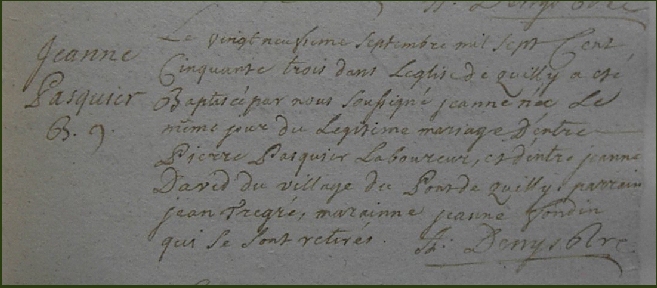 Jeanne
Pasquier
B.
Le vingt neufieme septembre mil sept Cent
Cinquante trois dans Leglise de quilly a eté
Baptisée par nous soussigné jeanne née Le
même jour du Legitime mariage D'entre
Pierre Pasquier Laboureur, et d'entre jeanne
David du village du de quilly, parrain
jean Fregré, marainne jeanne
qui se sont retirés. Denys Ptre